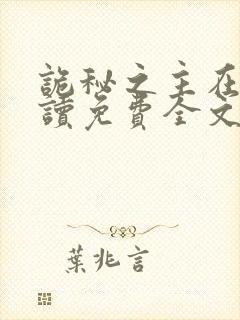 詭秘之主在
讀免費全文
葉兆言